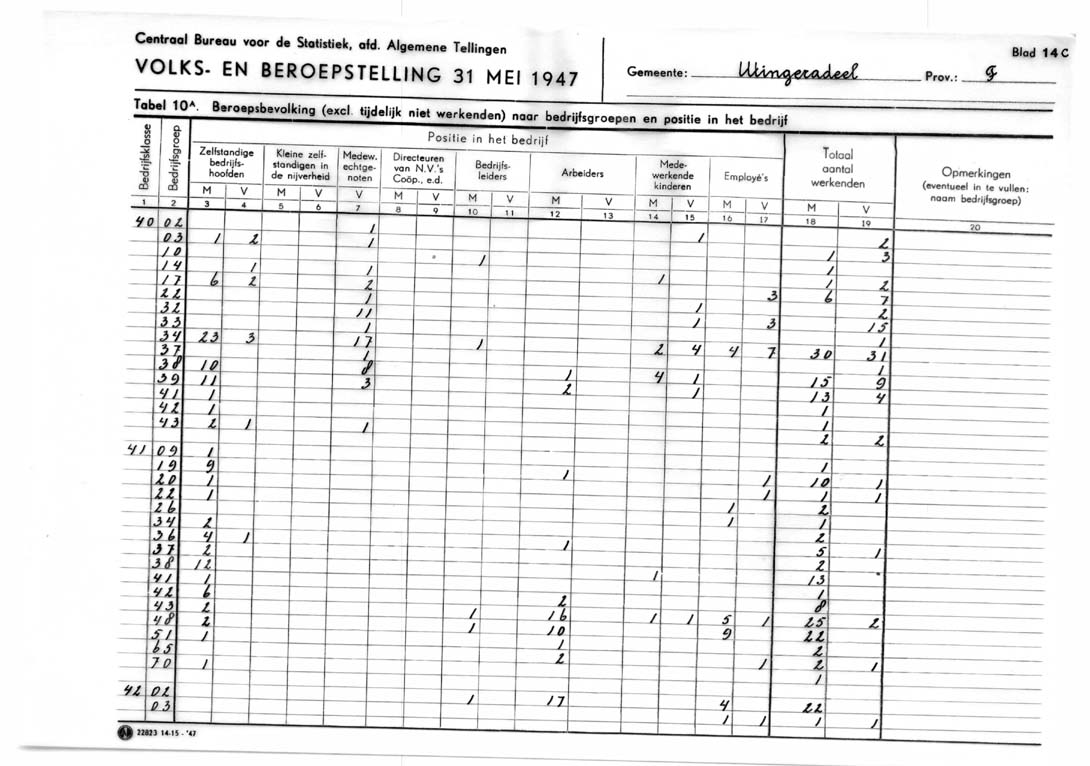 Centraal Bureau voor de Statistiek, afd. Algemene Tellingen
Blad 14 C
VOLKS- EN BEROEPSTELLING 31 MEI 1947
Gemeente: Utingeradeel Prov.: F
Tabel 10A. Beroepsbevolking (excl. tijdelijk niet werkenden) naar bedrijfsgroepen en positie in het bedrijf
Bedrijfsklasse Bedrijfsgroep Positie in het bedrijf Totaal aantal werkenden Opmerkingen (eventueel in te vullen: naam bedrijfsgroep)
Zelfstandige bedrijfs-hoofden Kleine zelf-standigen in de nijverheid Medew. echtge-noten Directeuren van N.V.'s Coöp., e.d. Bedrijfs-leiders Arbeiders Mede-werkende kinderen Employé's
M V M V V M V M V M V M V M V M V
1 2 3 4 5 6 7 8 9 10 11 12 13 14 15 16 17 18 19 20
40 02 1 2
03 1 2 1 1 1 3
10 1 1
14 1 1 1 2
17 6 2 2 1 3 6 7
22 1 2
32 11 1 3 15
33 1 1 1
34 23 3 17 1 2 4 4 7 30 31
37 1 1
38 10 8 1 4 1 15 9
39 11 3 2 1 13 4
41 1 1
42 1 1
43 2 1 1 2 2
41 09 1 1
19 9 1 1 10 1
20 1 1 1 1
22 1 1 2
26 1 1
34 2 2
36 4 1 1 5 1
37 2 2
38 12 1 13
41 1 1
42 6 2 8
43 2 1 16 1 1 5 1 25 2
48 2 1 10 9 22
51 1 1 2
65 2 1 2 1
70 1 1
42 02 1 17 4 22
03 1 1 1 1
22823 14-15-'47